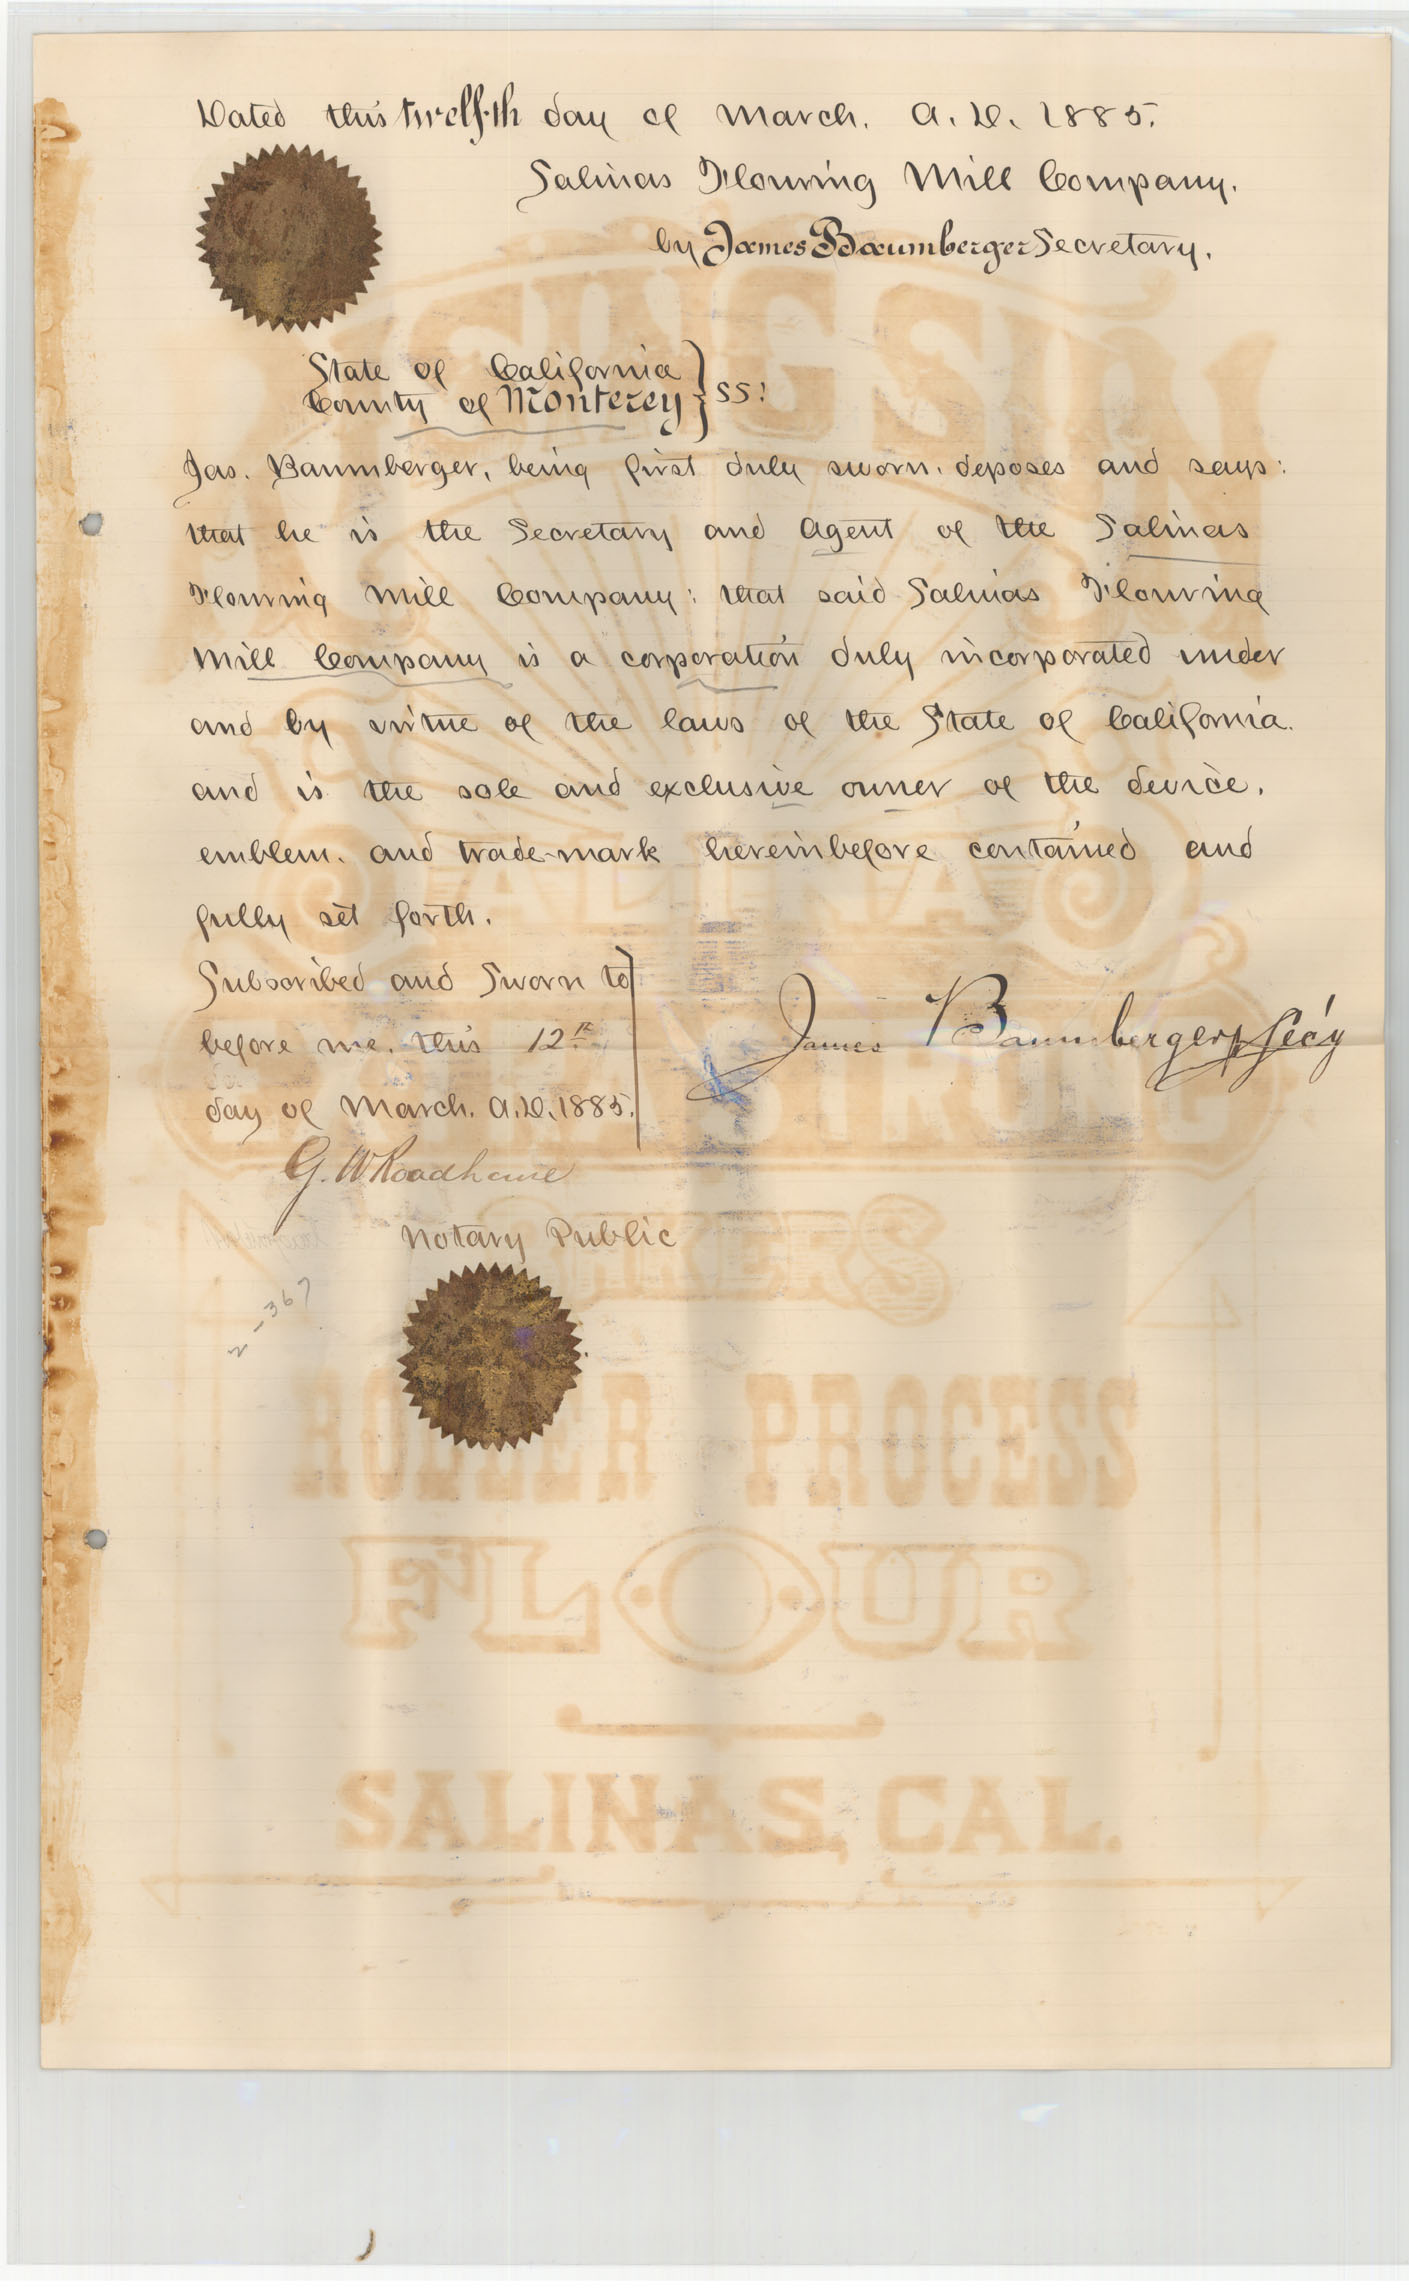 Dated this twelfth day of March. A. D. 1885.
Salinas Flouring Mill Company.
by James Baumberger Secretary.
State of California
County of Monterey } SS:
Jas. Baumberger, being first duly sworn, deposes and says:
that he is the Secretary and Agent of the Salinas
Flouring Mill Company: that said Salinas Flouring
Mill Company is a corporation duly incorporated under
and by virtue of the laws of the State of California.
and is the sole and exclusive owner of the device,
emblem, and trade-mark hereinbefore contained and
fully set forth.
Subscribed and Sworn to
before me, this 12th
day of March. A.D. 1885.
James Baumberger Sec'y
G. W. Roadhouse
Notary Public
2-367
ROLLER PROCESS
FLOUR
SALINAS, CAL.